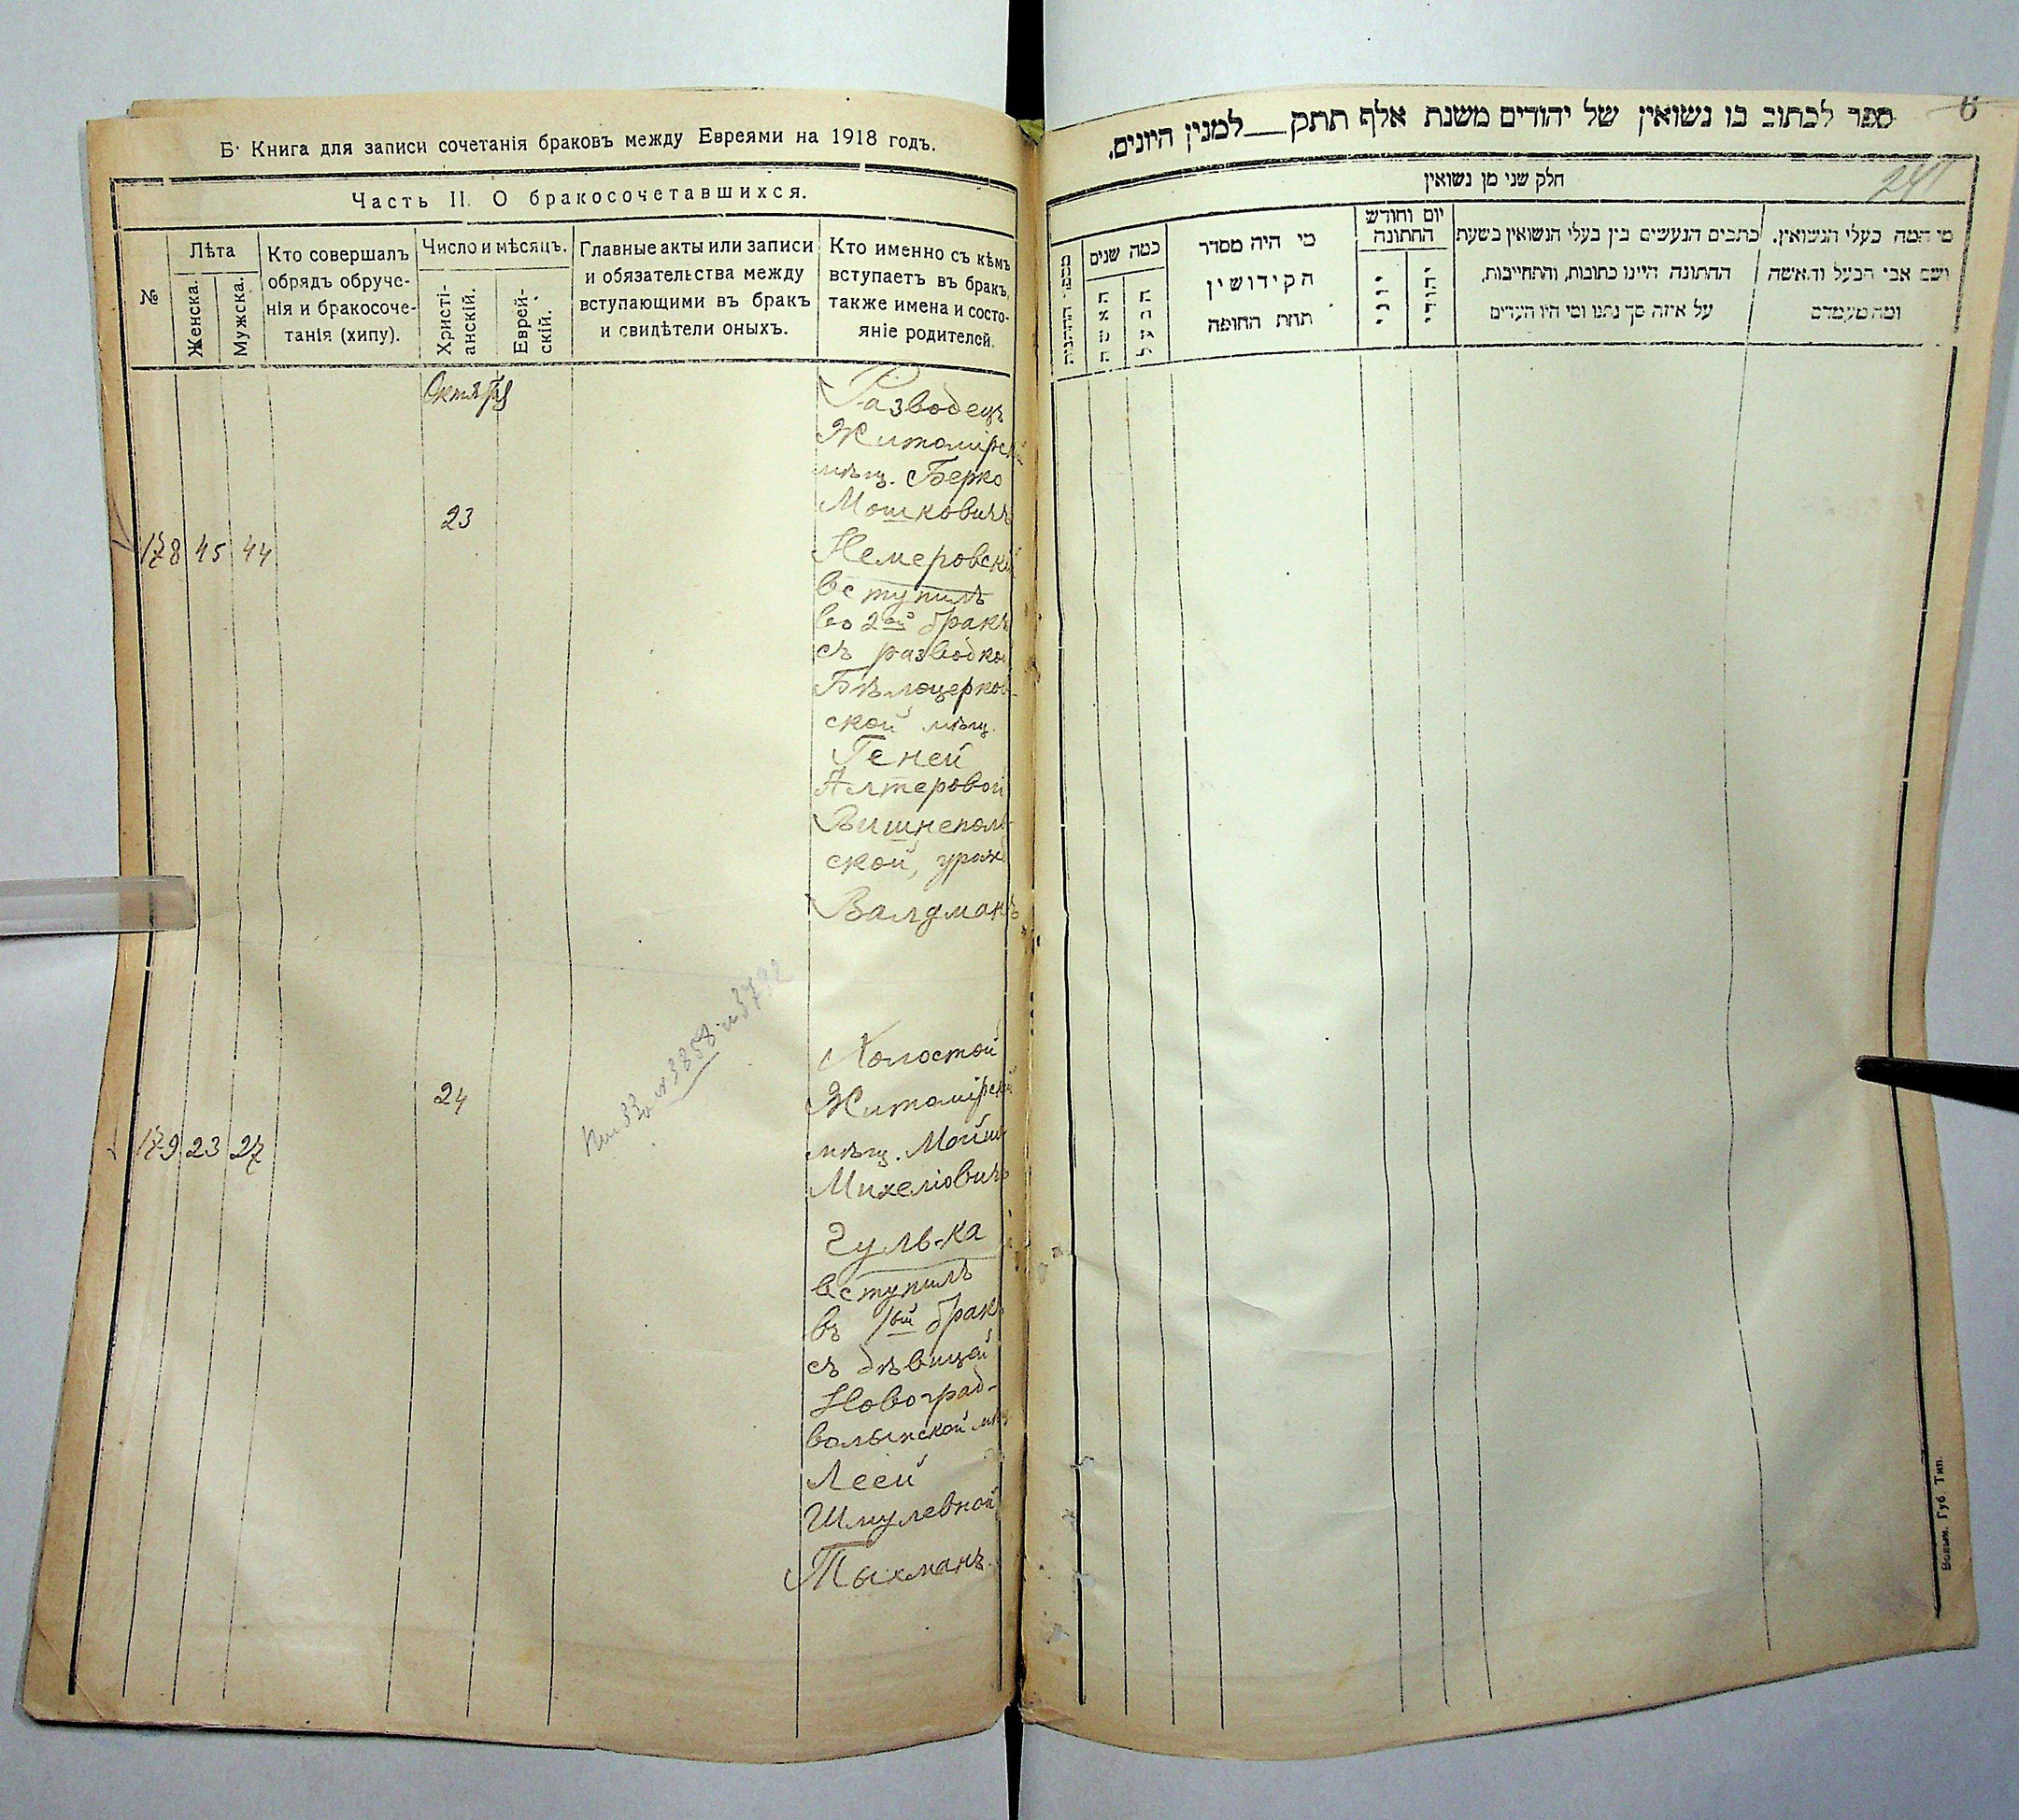 Б. Книга для записи сочетанія браковъ между Евреями на 1918 годъ.
Часть II. О бракосочетавшихся.
№
Лѣта
Женска.
Мужска.
Кто совершалъ
обрядъ обруче-
нія и бракосоче-
танія (хипу).
Число и мѣсяцъ.
Христі-
анскій.
Еврей-
скій.
Главные акты или записи
и обязательства между
вступающими въ бракъ
и свидѣтели оныхъ.
Кто именно съ кѣмъ
вступаетъ въ бракъ,
также имена и состо-
яніе родителей.
Октября
178 45 44
23
Разводецъ
Житомірскій
мѣщ. Берко
Мошковичъ
Немеровскій
вступилъ
во 2ой бракъ
съ разводкой
Бѣлоцерков-
ской мѣщ.
Геней
Алтеровой
Вишнеполь-
ской, урож
Валдманъ
№3858 и 3792
179 23 27
24
Холостой
Житомірскій
мѣщ. Мойше
Михелiовичъ
Гулька
вступилъ
въ 1ый бракъ
съ дѣвицей
Новоград-
волынской мѣщ
Леей
Шмулевной
Тыхманъ
6
ספר לכתוב בו נשואין של יהודים משנת אלף תתק למנין היונים.
241
חלק שני מן נשואין
מספר החתונות
כמה שנים
האשה
הבעל
מי היה מסדר
הקידושין
תחת החופה
יום וחודש
החתונה
יוני
יהודי
כתבים הנעשים בין בעלי הנשואין בשעת
החתונה היינו כתובות, והתחייבות,
על איזה סך נתנו ומי היו העדים
מי המה בעלי הנשואין.
ושם אבי הבעל והאשה
ומה מעמדם
Волын. Губ. Тип.